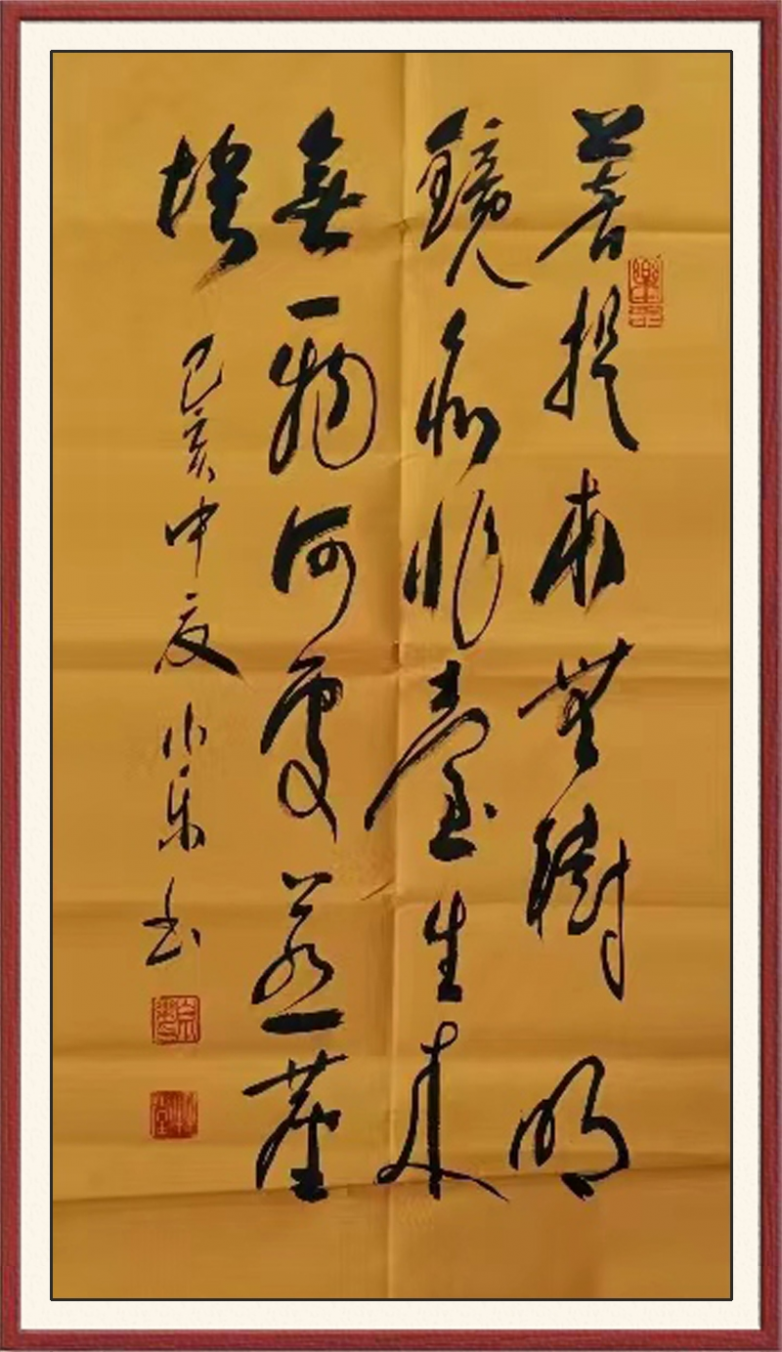 菩提本無樹明
鏡亦非臺生來
無一物何處惹塵
埃 己亥中夏 小乐书